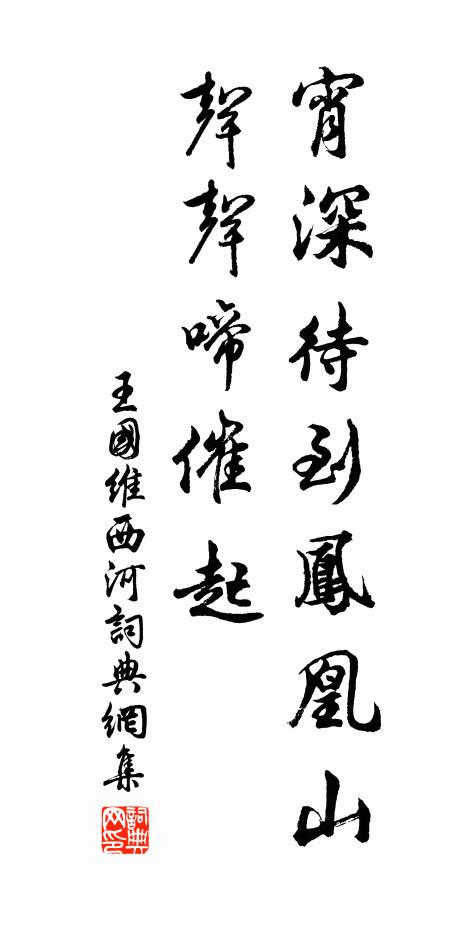 宵深待到鳳凰山
聲聲啼催起
王國維西河詞典網集
詞典網印